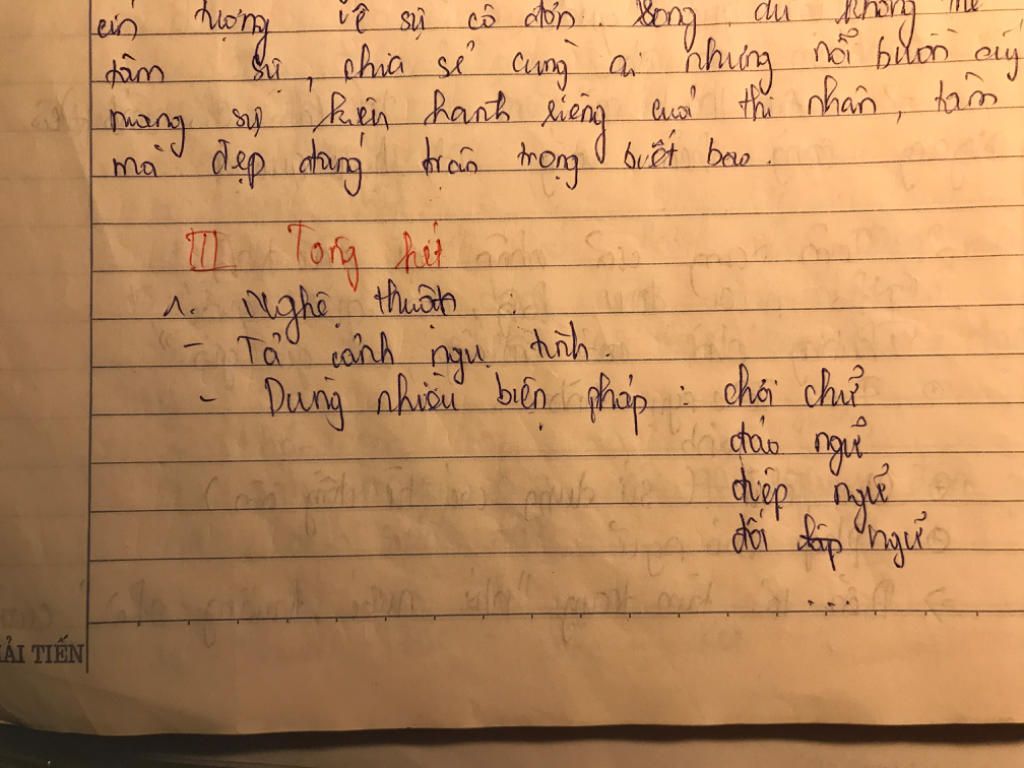 tượng về sự cô đơn. Song, dù không
tâm sự, chia sẻ cùng ai nhưng nỗi buồn ấy
mang sự kiện hanh riêng của thi nhân, tâm
mà đẹp đáng trân trọng biết bao.
III Tổng kết
1. Nghệ thuật :
- Tả cảnh ngụ tình.
- Dùng nhiều biện pháp : chơi chữ
đảo ngữ
điệp ngữ
đối ngữ
....
ẢI TIẾN